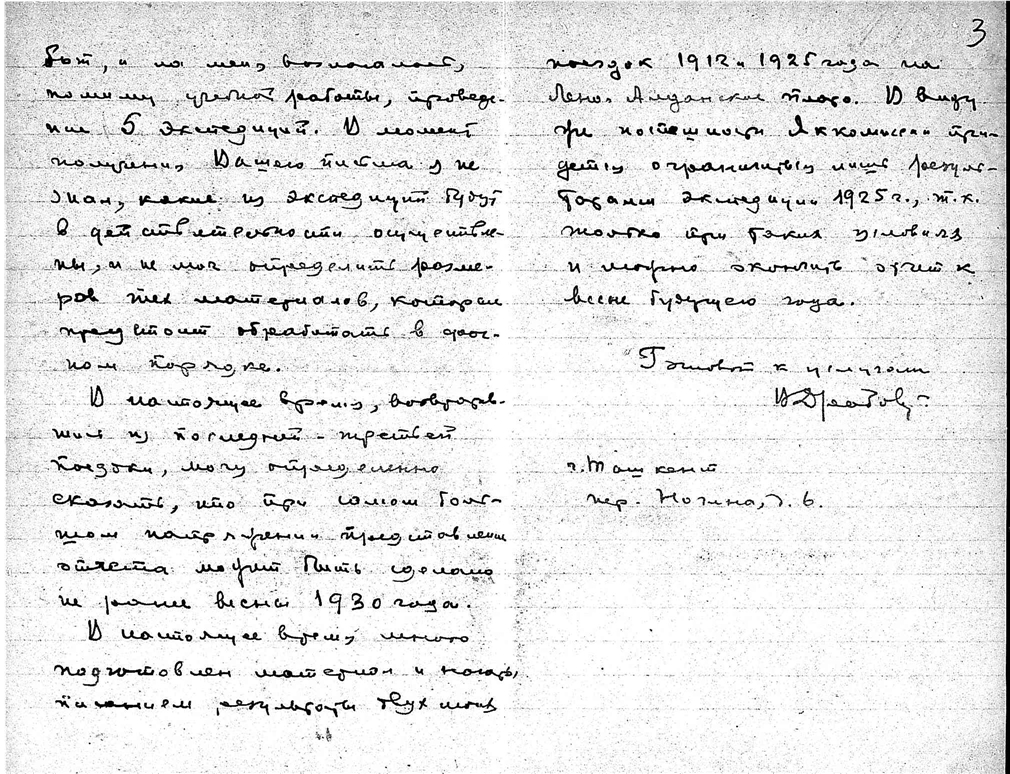 3
бот, и на меня возлагалось,
помимо учебной работы, проведе-
ние 5 экспедиций. В момент
получения Вашего письма я не
знал, какие из экспедиций будут
в действительности осуществле-
ны, и не мог определить разме-
ров тех материалов, которые
предстоит обработать в сроч-
ном порядке.
В настоящее время, возвратив-
шись из последней - третьей
поездки, могу определенно
сказать, что при самом боль-
шом напряжении представление
отчета может быть сделано
не ранее весны 1930 года.
В настоящее время мною
подготовлен материал и начаты
писанием результаты двух моих
поездок 1912 и 1925 года на
Лено-Алданское плато. В виду
же поспешности Яккомиссии при-
дется ограничиться лишь резуль-
татами экспедиции 1925 г., т.к.
только при таких условиях
и можно окончить отчет к
весне будущего года.
Готовый к услугам
г. Ташкент
пер. Ногина, д. 6.